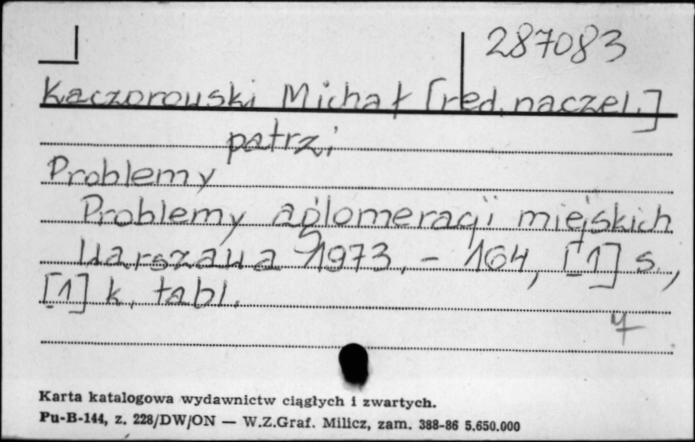 287083
Kaczorowski Michał [red. naczel.]
patrz:
Problemy
Problemy aglomeracji miejskich
Warszawa 1973, - 164, [1] s.,
[1] k. tabl.
4
Karta katalogowa wydawnictw ciągłych i zwartych.
Pu-B-144, z. 228/DW/ON — W.Z.Graf. Milicz, zam. 388-86 5.650.000